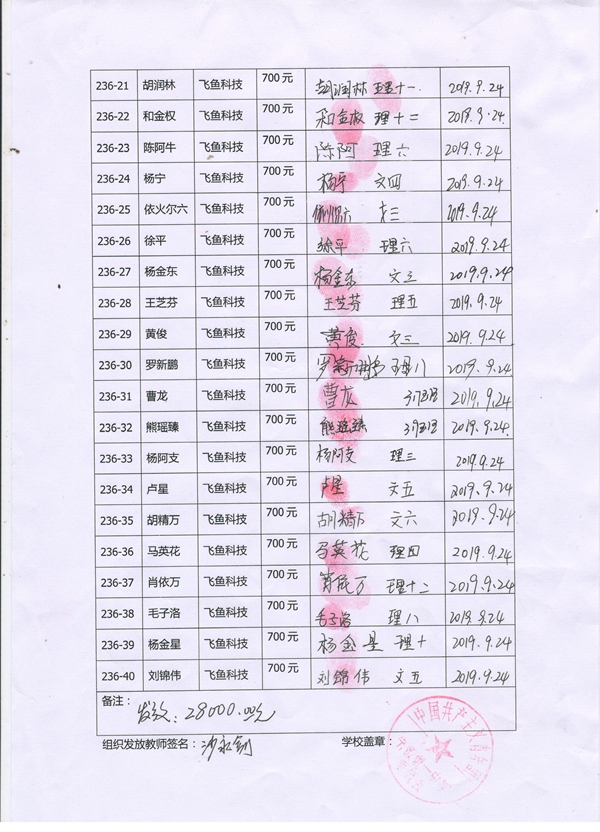 236-21 胡润林 飞鱼科技 700元 胡润林 理十一 2019.9.24
236-22 和金权 飞鱼科技 700元 和金权 理十二 2019.9.24
236-23 陈阿牛 飞鱼科技 700元 陈阿 理六 2019.9.24
236-24 杨宁 飞鱼科技 700元 杨宁 文四 2019.9.24
236-25 依火尔六 飞鱼科技 700元 文三 2019.9.24
236-26 徐平 飞鱼科技 700元 徐平 理六 2019.9.24
236-27 杨金东 飞鱼科技 700元 杨金东 文三 2019.9.24
236-28 王芝芬 飞鱼科技 700元 王芝芬 理五 2019.9.24
236-29 黄俊 飞鱼科技 700元 黄俊 文三 2019.9.24
236-30 罗新鹏 飞鱼科技 700元 罗新鹏 理八 2019.9.24
236-31 曹龙 飞鱼科技 700元 曹龙 2019.9.24
236-32 熊瑶臻 飞鱼科技 700元 熊瑶臻 2019.9.24
236-33 杨阿支 飞鱼科技 700元 杨阿支 理三 2019.9.24
236-34 卢星 飞鱼科技 700元 卢星 文五 2019.9.24
236-35 胡精万 飞鱼科技 700元 胡精万 文六 2019.9.24
236-36 马英花 飞鱼科技 700元 马英花 理四 2019.9.24
236-37 肖依万 飞鱼科技 700元 肖依万 理十二 2019.9.24
236-38 毛子洛 飞鱼科技 700元 毛子洛 理八 2019.9.24
236-39 杨金星 飞鱼科技 700元 杨金星 理十 2019.9.24
236-40 刘锦伟 飞鱼科技 700元 刘锦伟 文五 2019.9.24
备注：
发放：28000.00元
组织发放教师签名： 学校盖章：
中国共产主义青年团